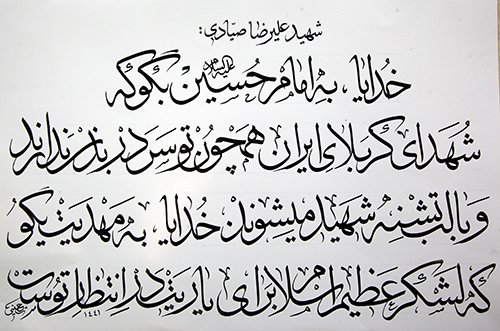 شهید علیرضا صیّادی:
خدایا، به امام حُسین علیه‌السلام بگو که
شُهدای کربلای ایران همچون تو سر در بدن ندارند
و با لب تشنه شهید میشوند خدایا، به مهدیت بگو
که لشگر عظیم اسلام برای یاریت در انتظار توست
۱۴۴۱